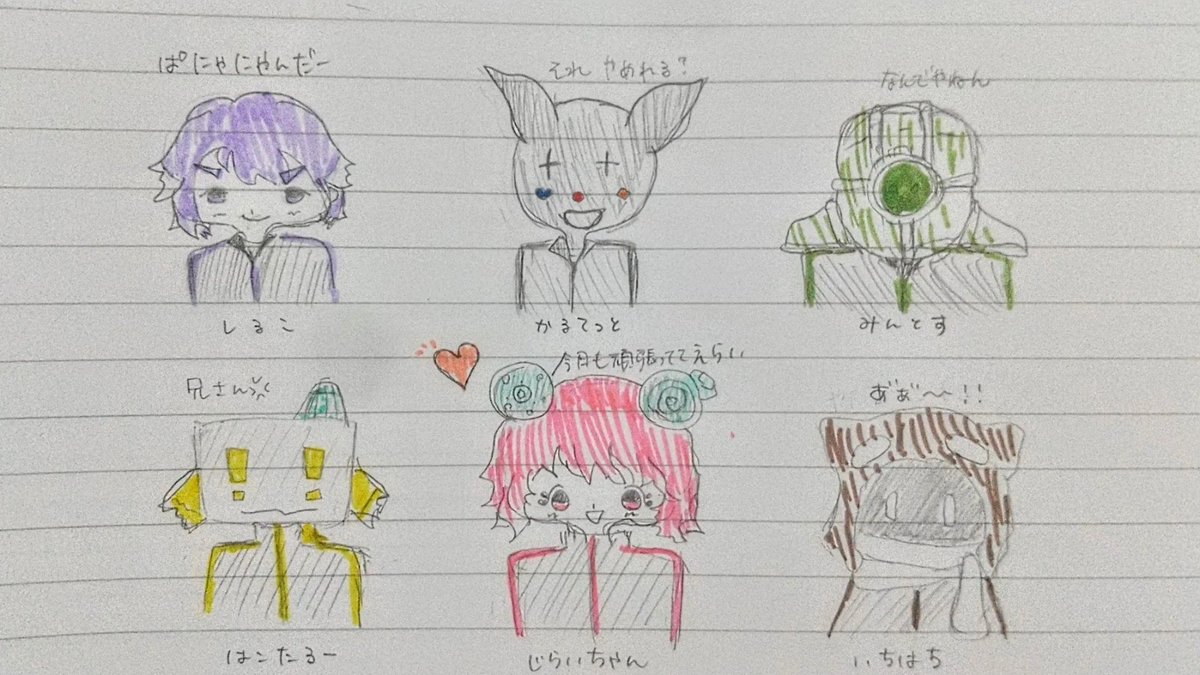 ぱにゃにゃんだー
それ やめれる?
なんでやねん
しるこ
かるてっと
みんとす
兄さん
今月も頑張っててえらい
あ゛あ゛〜!!
はこたるー
じらいちゃん
いちはち